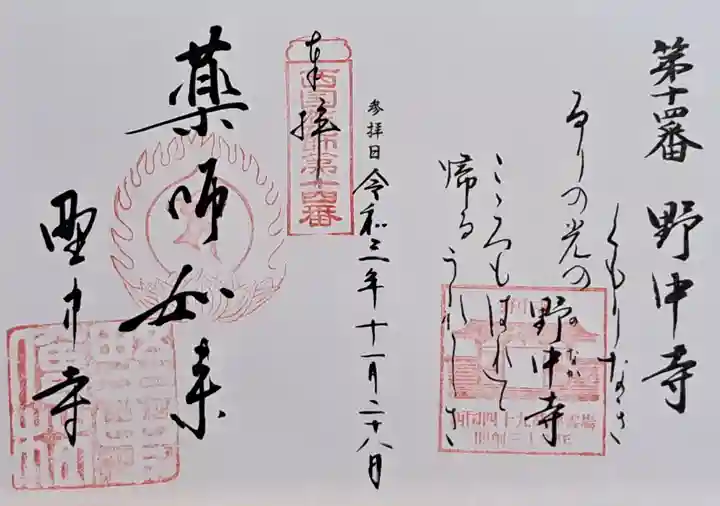 第十四番 野中寺
くもりなき
るりの光の
野中寺
のなか
こゝろもはれて
帰るうれしさ
参拝日 令和三年十一月二十八日
奉拝
西国薬師第十四番
薬師如来
野中寺